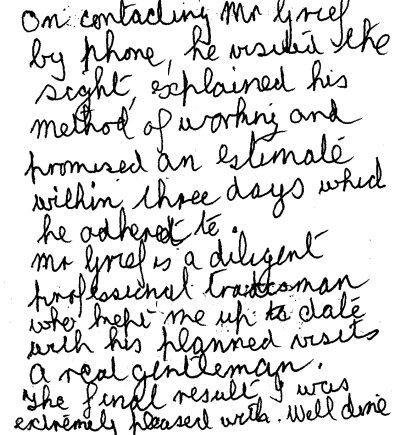 On contacting Mr Grief
by phone, he visited the
sight, explained his
method of working and
promised an estimate
within three days which
he adhered to.
Mr Grief is a diligent
professional tradesman
who kept me up to date
with his planned visits
a real gentleman.
The final result I was
extremely pleased with. Well done